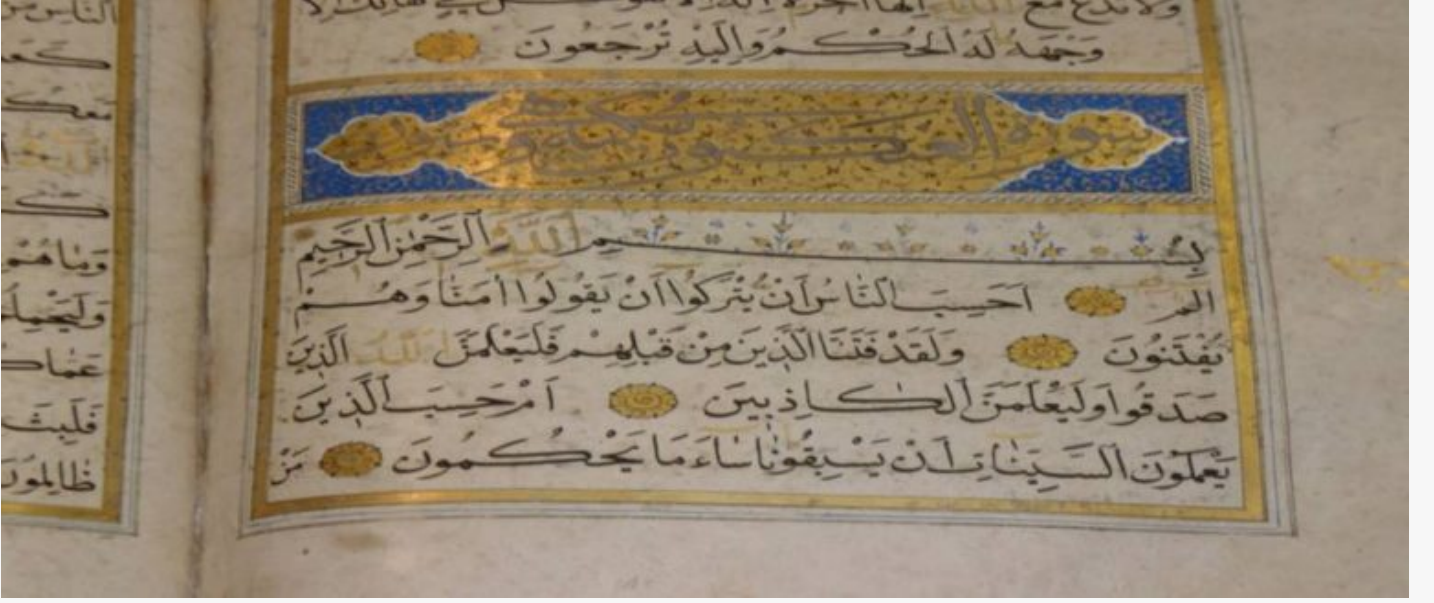 ولا تدع مع الله الها اخر لا اله الا هو كل شيء هالك الا
وَجْهَهُ لَهُ الْحُكْمُ وَاِلَيْهِ تُرْجَعُونَ
سورة العنكبوت
بِسْمِ اللّٰهِ الرَّحْمٰنِ الرَّحِيمِ
الم اَحَسِبَ النَّاسُ اَنْ يُتْرَكُوا اَنْ يَقُولُوا اٰمَنَّا وَهُمْ
يُفْتَنُونَ وَلَقَدْ فَتَنَّا الَّذِينَ مِنْ قَبْلِهِمْ فَلَيَعْلَمَنَّ اللّٰهُ الَّذِينَ
صَدَقُوا وَلَيَعْلَمَنَّ الْكَاذِبِينَ اَمْ حَسِبَ الَّذِينَ
يَعْمَلُونَ السَّيِّئَاتِ اَنْ يَسْبِقُونَا سَاءَ مَا يَحْكُمُونَ مَنْ
النَّاسِ
وَمَا هُمْ
فَلَبِثَ
ظَالِمُونَ